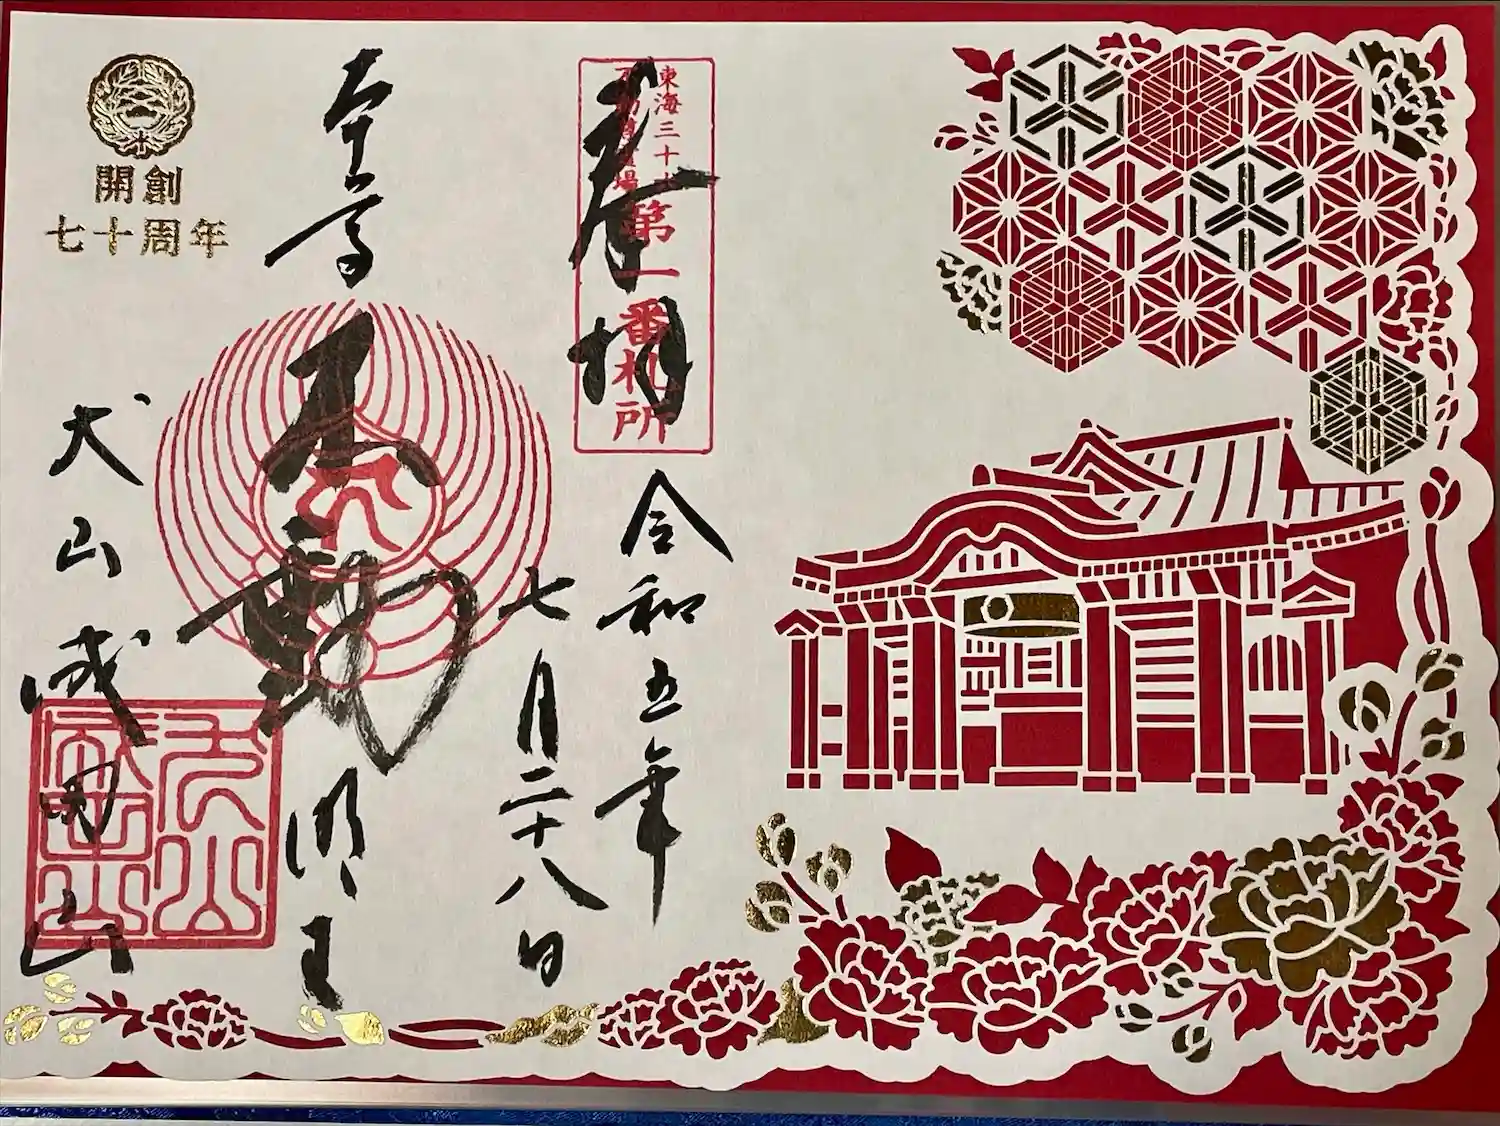 東海三十六
不動尊霊場
第一番札所
奉拝
令和五年
七月二十八日
本尊
不動明王
犬山成田山
開創
七十周年